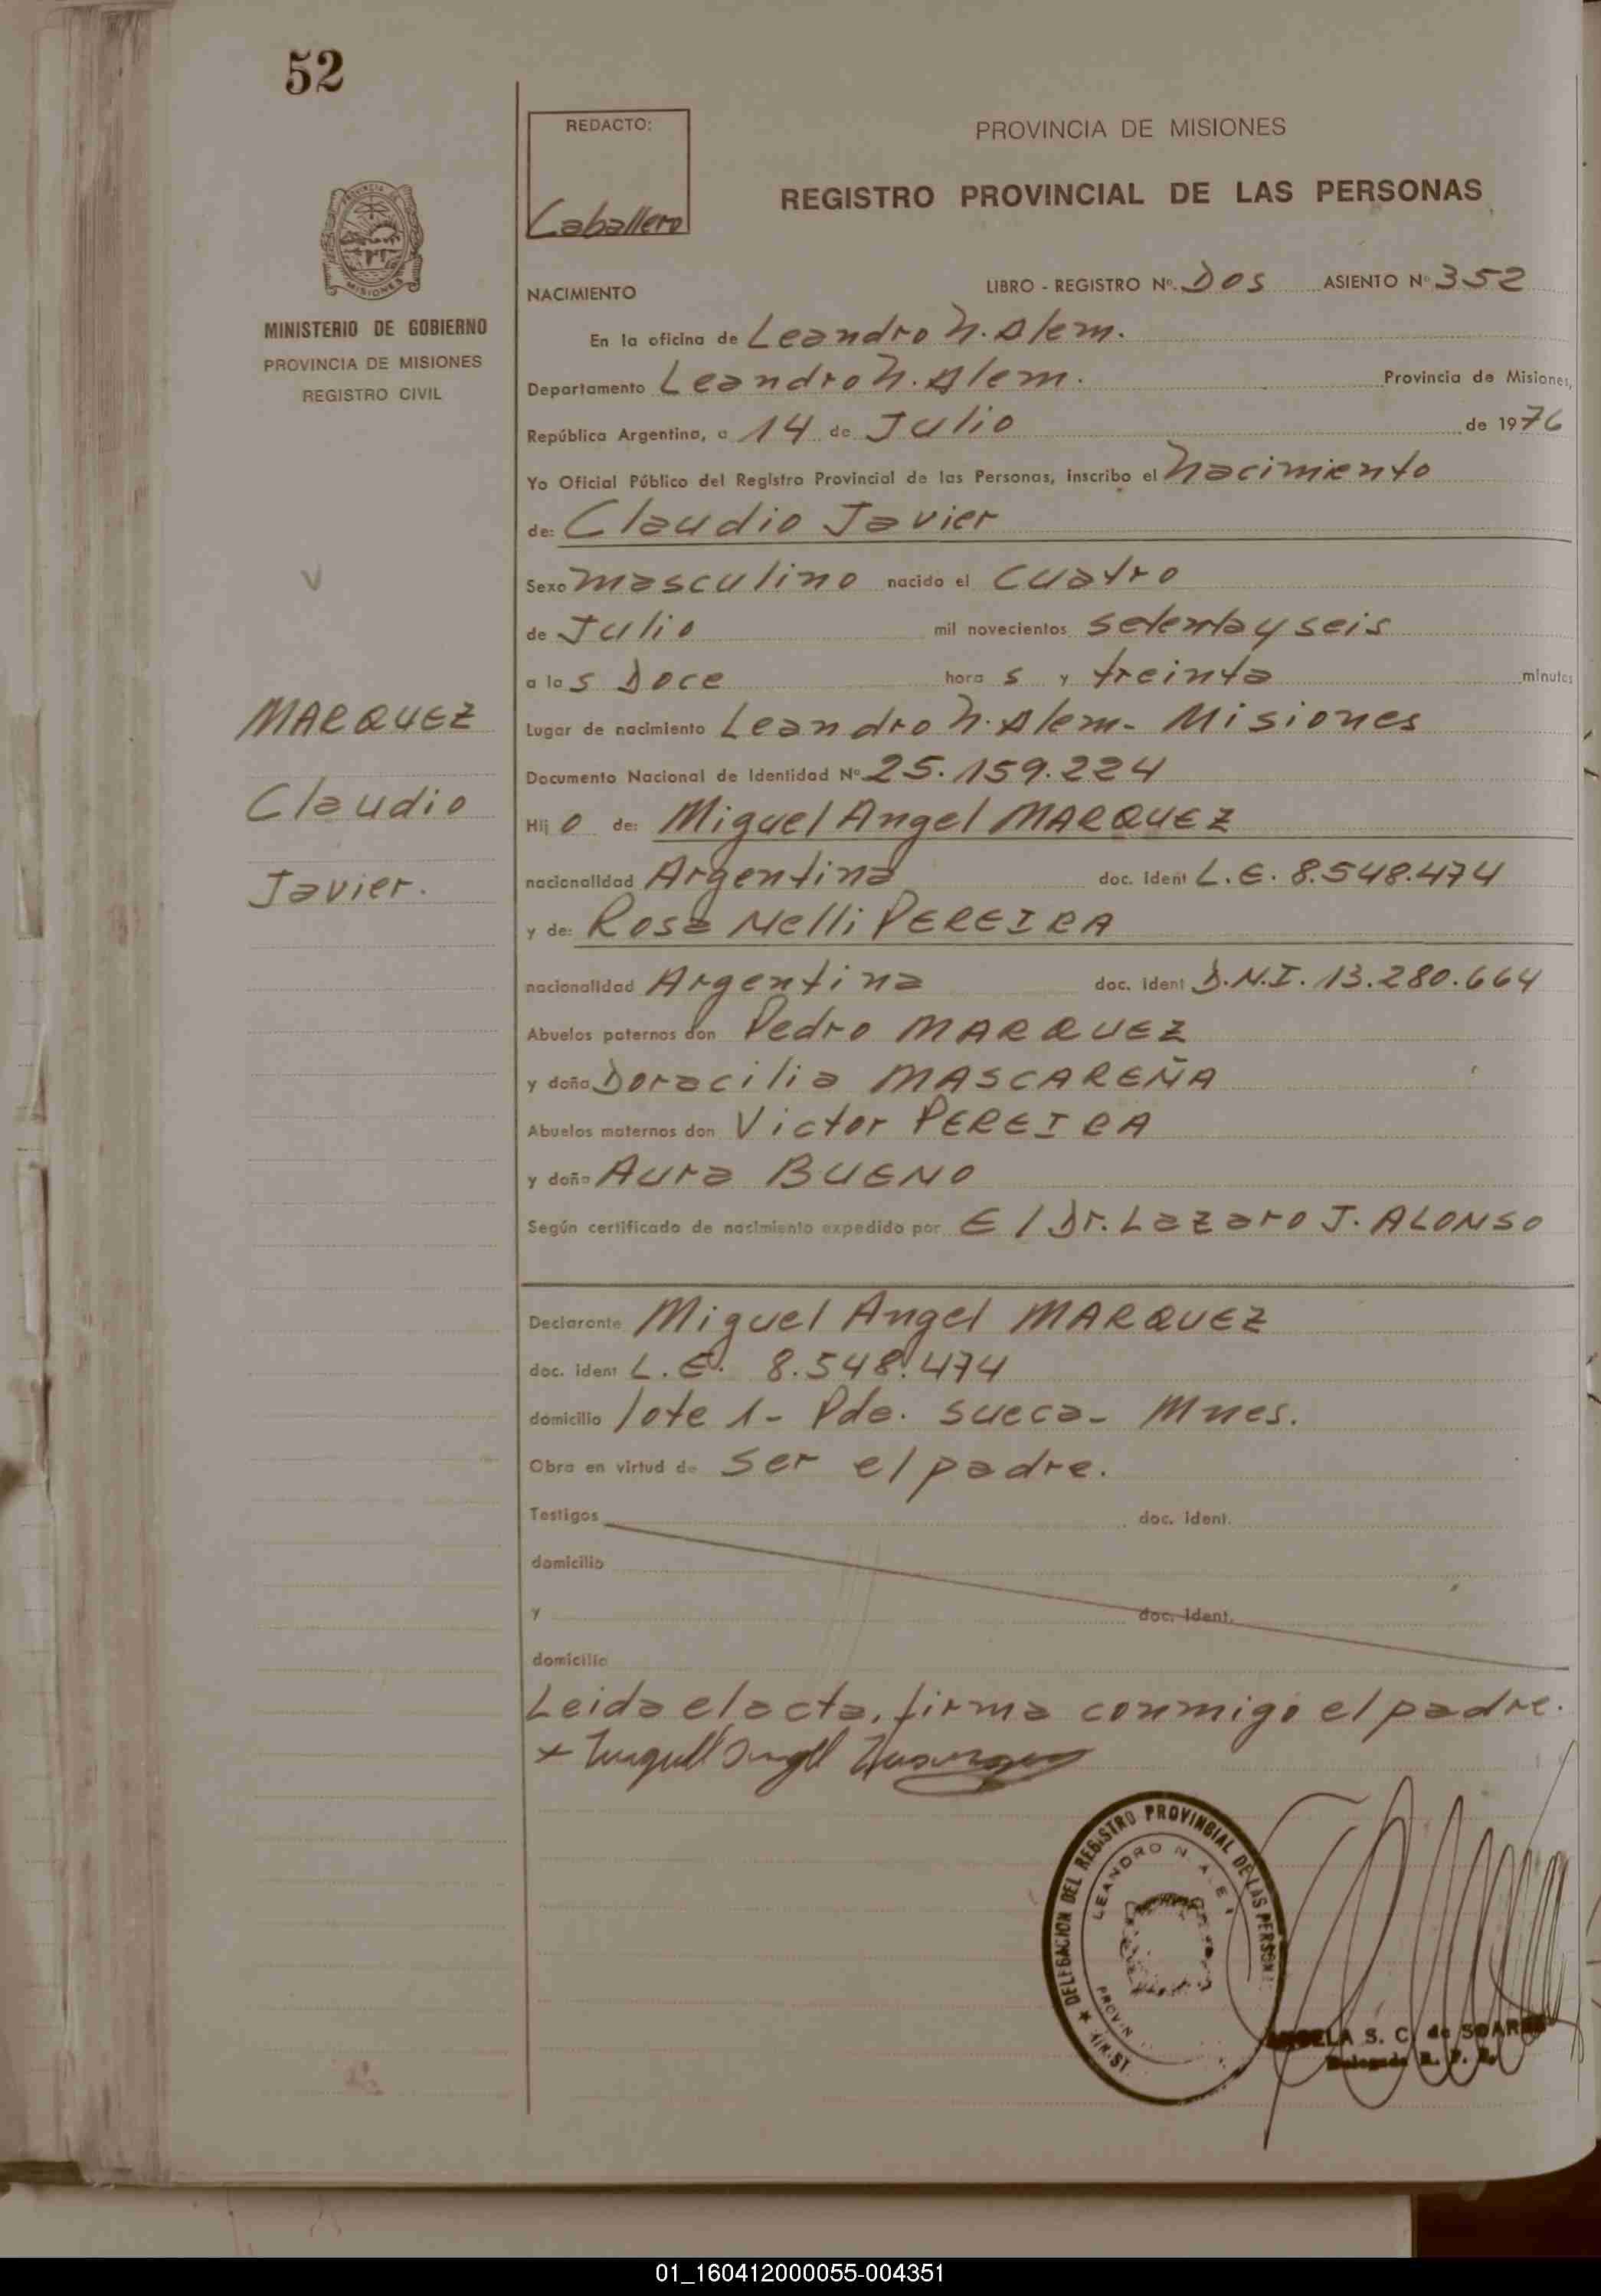 52
REDACTO:
Caballero
PROVINCIA DE MISIONES
REGISTRO PROVINCIAL DE LAS PERSONAS
MISIONES
MINISTERIO DE GOBIERNO
PROVINCIA DE MISIONES
REGISTRO CIVIL
MARQUEZ
Claudio
Javier.
NACIMIENTO LIBRO - REGISTRO Nº. Dos ASIENTO Nº 352
En la oficina de Leandro N. Alem.
Departamento Leandro N. Alem. Provincia de Misiones,
República Argentina, a 14 de Julio de 1976
Yo Oficial Público del Registro Provincial de las Personas, inscribo el Nacimiento
de: Claudio Javier
Sexo masculino nacido el cuatro
de Julio mil novecientos setenta y seis
a las Doce horas y treinta minutos
Lugar de nacimiento Leandro N. Alem - Misiones
Documento Nacional de Identidad Nº 25.159.224
Hijo de: Miguel Angel MARQUEZ
nacionalidad Argentina doc. ident L.E. 8.548.474
y de: Rosa Nelli PEREIRA
nacionalidad Argentina doc. ident D.N.I. 13.280.664
Abuelos paternos don Pedro MARQUEZ
y doña Doracilia MASCAREÑA
Abuelos maternos don Victor PEREIRA
y doña Aura BUENO
Según certificado de nacimiento expedido por El Dr. Lazaro J. ALONSO
Declarante Miguel Angel MARQUEZ
doc. ident L.E. 8.548.474
domicilio lote 1 - Pde. sueca - Mnes.
Obra en virtud de ser el padre.
Testigos doc. ident.
domicilio
y doc. ident.
domicilio
Leida el acta, firma conmigo el padre.
DELEGACION DEL REGISTRO PROVINCIAL DE LAS PERSON
LEANDRO N. ALE
PROVIN
S. C. de SOARES
Delegada R. P. P.
01_160412000055-004351